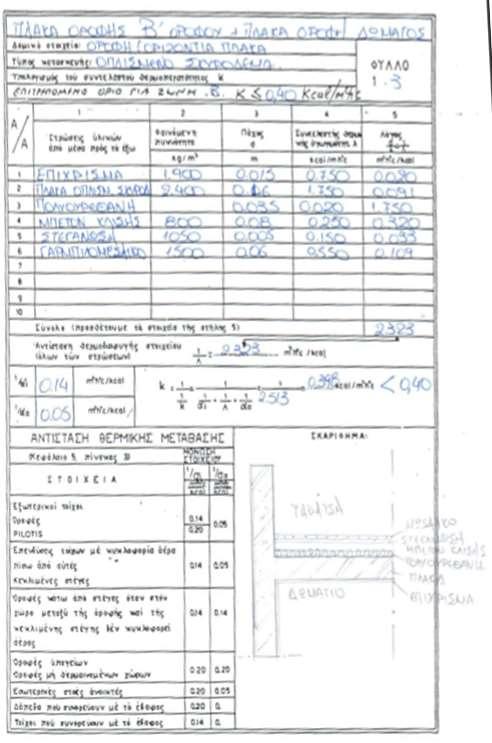 ΠΛΑΚΑ ΟΡΟΦΗΣ Β' ΟΡΟΦΟΥ + ΠΛΑΚΑ ΟΡΟΦΗ ΔΩΜΑΤΟΣ
Δομικό στοιχείο: ΟΡΟΦΗ/ΟΡΙΖΟΝΤΙΑ ΠΛΑΚΑ
Τύπος κατασκευής: ΟΠΛΙΣΜΕΝΟ ΣΚΥΡΟΔΕΜΑ
Υπολογισμός τοῦ συντελεστοῦ θερμοπερατότητας k
ΕΠΙΤΡΕΠΟΜΕΝΟ ΟΡΙΟ ΓΙΑ ΖΩΝΗ .Β. K ≤ 0,40 Kcal/m²h°c
ΦΥΛΛΟ
1.3
Α/Α
1 2 3 4 5
Στρώσεις ὑλικῶν ἀπό μέσα πρός τά ἔξω
Φαινόμενη πυκνότητα
Πάχος d
Συντελεστής θερμικῆς ἀγωγιμότητας λ
Λόγος
kg/m³ m kcal/mh°c
1 ΕΠΙΧΡΙΣΜΑ 1.900 0.015 0.750 0.020
2 ΠΛΑΚΑ ΟΠΛΙΣΜ. ΣΚΥΡΟΔ 2.400 0.16 1.750 0.091
3 ΠΟΛΥΟΥΡΕΘΑΝΗ 0.035 0.020 1.750
4 ΜΠΕΤΟΝ ΚΛΙΣΗΣ 800 0.08 0.250 0.320
5 ΣΤΕΓΑΝΩΣΗ 1050 0.005 0.150 0.033
6 ΓΑΡΜΠΙΛΟΜΩΣΑΙΚΟ 1500 0.06 0.550 0.109
7
8
9
10
Σύνολο (προσθέτουμε τά στοιχεῖα τῆς στήλης 5) 2323
Ἀντίσταση θερμοδιαφυγῆς στοιχείου (ὅλων τῶν στρώσεων) 1/Λ = 2.323 m²h°c/kcal
1/αi 0.14 m²h°c/kcal
1/αa 0.05 m²h°c/kcal
k = 1/(1/k) = 1/(1/αi + 1/Λ + 1/αa) = 1/2.513 = 0.398 kcal/m²h°c < 0,40
ΑΝΤΙΣΤΑΣΗ ΘΕΡΜΙΚΗΣ ΜΕΤΑΒΑΣΗΣ
Κεφάλαιο 5, πίνακας 3)
ΣΤΟΙΧΕΙΑ
ΜΟΝΩΣΗ ΣΤΟΙΧΕΙΟΥ
1/αi 1/αa
Ἐξωτερικοί τοῖχοι
Ὀροφές 0.14 0.05
PILOTIS 0.20
Ἐπενδύσεις τοίχων μέ κυκλοφορία ἀέρα
πίσω ἀπό αὐτές 0.14 0.05
Κεκλιμένες στέγες
Ὀροφές κάτω ἀπό στέγες ὅταν στόν
χῶρο μεταξύ τῆς ὀροφῆς καί τῆς 0.14 0.14
κεκλιμένης στέγης δέν κυκλοφορεῖ
ἀέρας
Ὀροφές ὑπογείων
Ὀροφές μή θερμαινομένων χώρων 0.20 0.20
Ἐσωτερικές στοές ἀνοικτές 0.20 0.05
Δάπεδα πού συνορεύουν μέ τό ἔδαφος 0.20 0.
Τοῖχοι πού συνορεύουν μέ τό ἔδαφος 0.14 0.
ΣΚΑΡΙΦΗΜΑ:
ΤΑΡΑΤΣΑ
ΔΩΜΑΤΙΟ
ΜΩΣΑΙΚΟ
ΣΤΕΓΑΝΩΣΗ
ΜΠΕΤΟΝ ΚΛΙΣΗΣ
ΠΟΛΥΟΥΡΕΘΑΝΗ
ΠΛΑΚΑ
ΕΠΙΧΡΙΣΜΑ